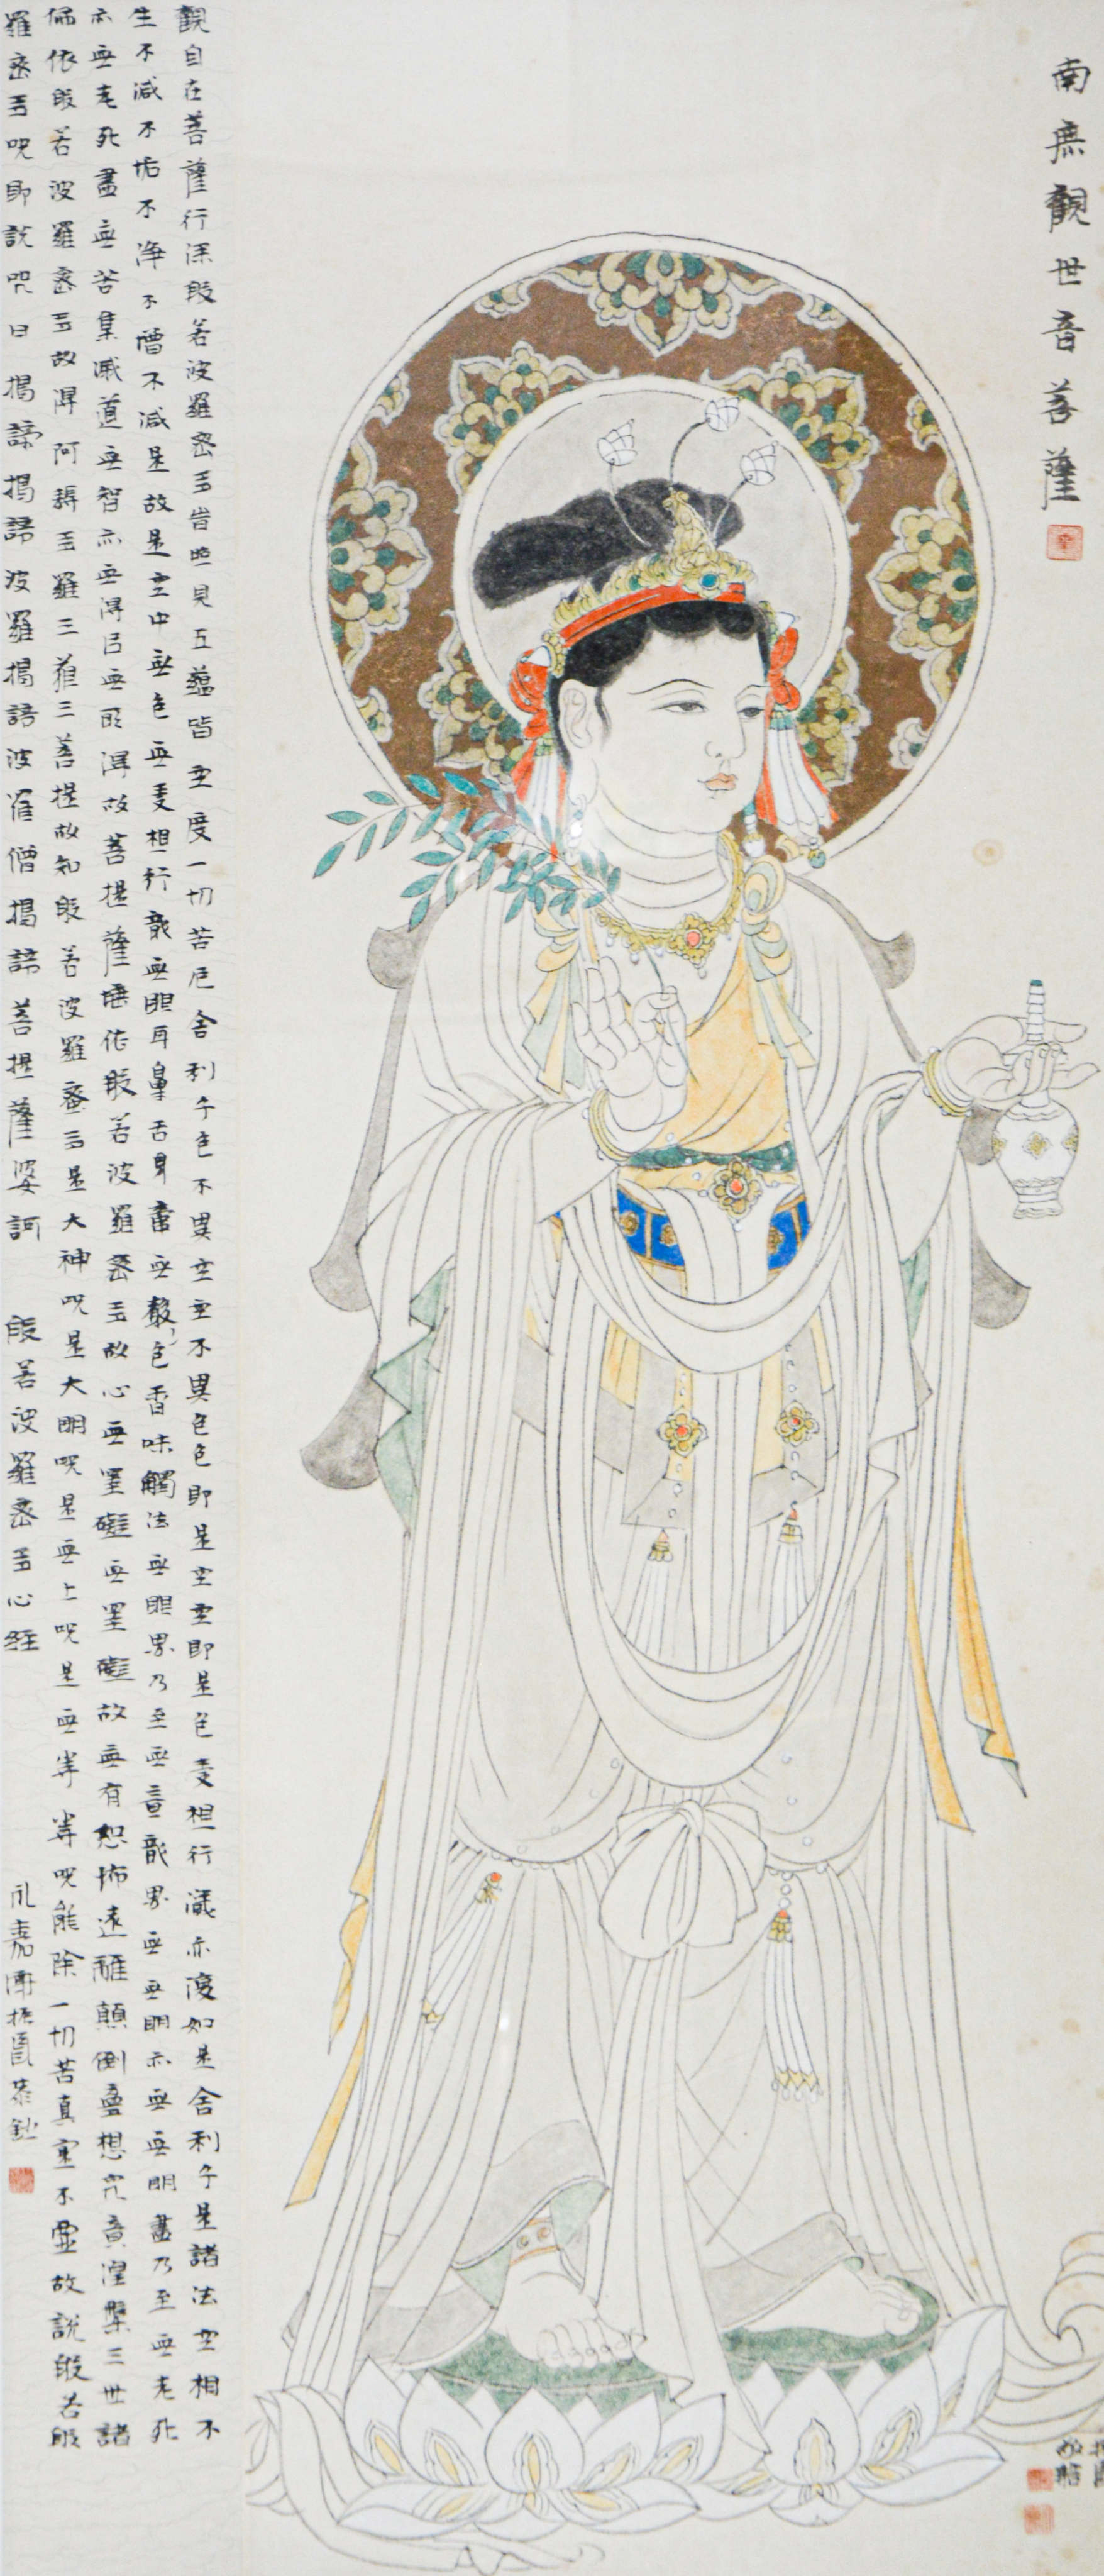 南無觀世音菩薩
觀自在菩薩行深般若波羅蜜多旹照見五蘊皆空度一切苦厄舍利子色不異空空不異色色即是空空即是色受想行識亦復如是舍利子是諸法空相不
生不滅不垢不淨不增不減是故是空中無色無受相行識無眼耳鼻舌身意無聲色香味觸法無眼界乃至無意識界無無明亦無無明盡乃至無老死
亦無老死盡無苦集滅道無智亦無得㠯無所得故菩提薩埵依般若波羅蜜多故心無罣礙無罣礙故無有恐怖遠離顛倒夢想究竟涅槃三世諸
佛依般若波羅蜜多故得阿耨多羅三藐三菩提故知般若波羅蜜多是大神咒是大明咒是無上咒是無等等咒能除一切苦真實不虛故說般若般
羅蜜多咒即說咒曰揭諦揭諦波羅揭諦波羅僧揭諦菩提薩婆訶 般若波羅蜜多心經 振國恭鈔